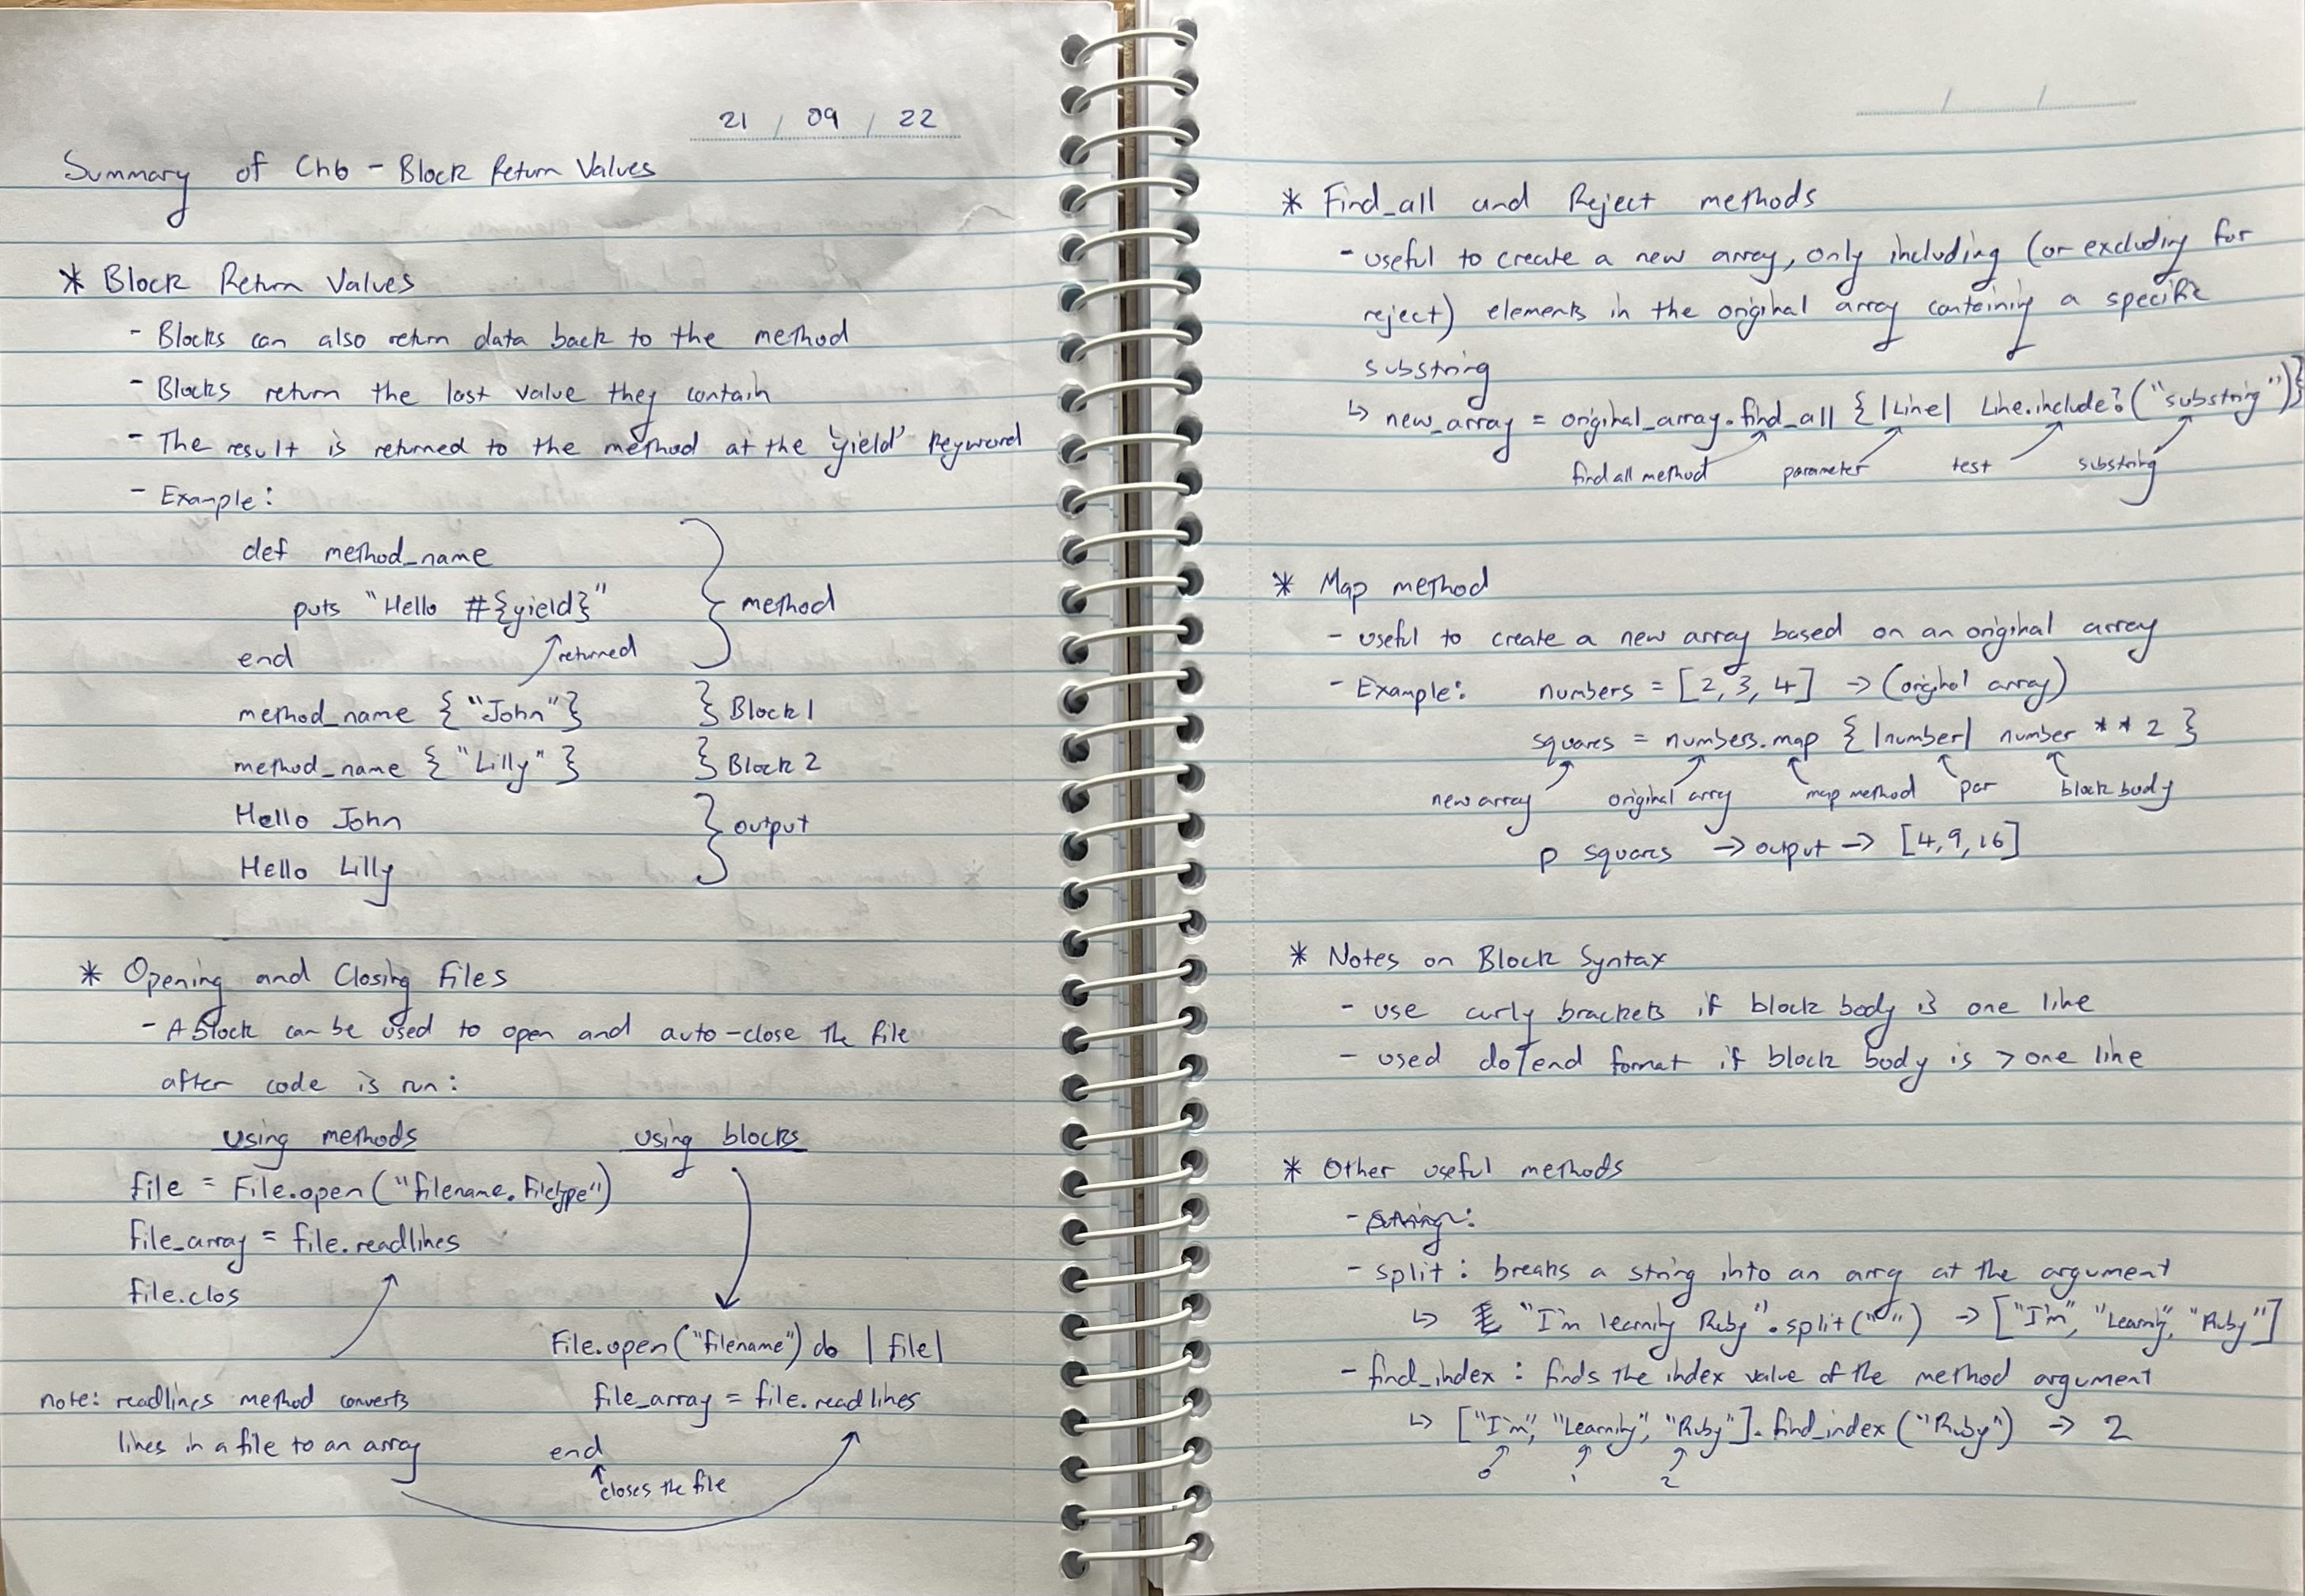 21 / 09 / 22
Summary of Ch6 - Block Return Values
* Block Return Values
- Blocks can also return data back to the method
- Blocks return the last value they contain
- The result is returned to the method at the 'yield' keyword
- Example:
def method_name
puts "Hello #{yield}"
end
returned
} method
method_name { "John" } } Block 1
method_name { "Lilly" } } Block 2
Hello John
Hello Lilly
} output
* Opening and Closing Files
- A block can be used to open and auto-close the file
after code is run:
using methods
file = File.open("filename.filetype")
file_array = file.readlines
file.clos
note: readlines method converts
lines in a file to an array
using blocks
File.open("filename") do |file|
file_array = file.readlines
end
closes the file
/ /
* Find_all and Reject methods
- useful to create a new array, only including (or excluding for
reject) elements in the original array containing a specific
substring
↳ new_array = original_array.find_all { |line| line.include?("substring")}
find all method parameter test substring
* Map method
- useful to create a new array based on an original array
- Example: numbers = [2, 3, 4] → (original array)
squares = numbers.map { |number| number ** 2 }
new array original array map method par block body
p squares → output → [4, 9, 16]
* Notes on Block Syntax
- use curly brackets if block body is one line
- used do/end format if block body is > one line
* Other useful methods
- string:
- split: breaks a string into an array at the argument
↳ "I'm learning Ruby".split(" ") → ["I'm", "Learning", "Ruby"]
- find_index: finds the index value of the method argument
↳ ["I'm", "Learning", "Ruby"].find_index("Ruby") → 2
0 1 2